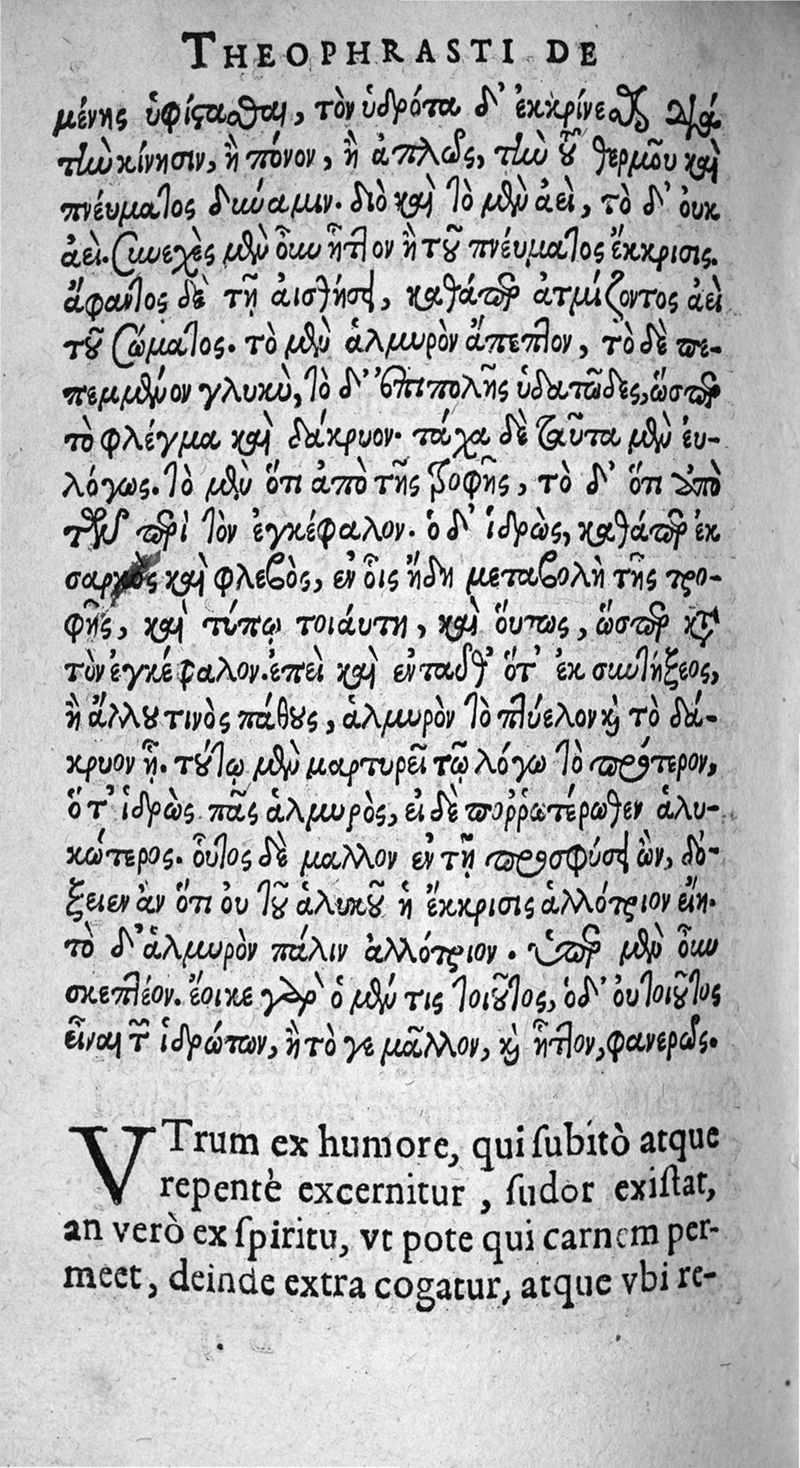 THEOPHRASTI DE
μένης ὑφίστασθαι, τὸν ἱδρότα δ' ἐκκρίνεσθαι διὰ
τὴν κίνησιν, ἢ πόνον, ἢ ἁπλῶς, τὴν τοῦ θερμοῦ καὶ
πνέυματος δύναμιν. διὸ καὶ τὸ μὲν ἀεὶ, τὸ δ' ουκ
ἀεί. συνεχὲς μὲν οὖν ἧττον ἢ τοῦ πνέυματος ἔκκρισις.
ἄφαντος δὲ τῇ αισθήσει, καθάπερ ἀτμίζοντος ἀεὶ
τοῦ σώματος. τὸ μὲν ἁλμυρὸν ἄπεπτον, τὸ δὲ πε-
πεμμένον γλυκὺ, τὸ δ' ἐπιπολῆς ὑδατῶδες, ὥσπερ
τὸ φλέγμα καὶ δάκρυον. τάχα δὲ ταῦτα μὲν ἐυ-
λόγως. τὸ μὲν ὅτι ἀπὸ τῆς τροφῆς, τὸ δ' ὅτι ἀπὸ
τῶν περὶ τὸν ἐγκέφαλον. ὁ δ' ἱδρὼς, καθάπερ ἐκ
σαρκὸς καὶ φλεβὸς, ἐν οἷς ἤδη μεταβολὴ τῆς τρο-
φῆς, καὶ τύπῳ τοιάυτη, καὶ ὅυτως, ὥσπερ κατὰ
τὸν ἐγκέφαλον. ἐπεὶ καὶ ἐνταῦθ' ὅτ' ἐκ συντήξεος,
ἢ ἄλλου τινὸς πάθους, ἁλμυρὸν τὸ πτύελον καὶ τὸ δά-
κρυον ᾖ. τούτῳ μὲν μαρτυρεῖ τῷ λόγω τὸ πρότερον,
ὅτ' ἱδρὼς πᾶς ἁλμυρὸς, ει δὲ πορῥωτέρωθεν ἁλυ-
κώτερος. οὗτος δὲ μαλλον ἐν τῇ προσφύσει ὢν, δό-
ξειεν ἀν ὅτι ὀυ τοῦ ἁλυκοῦ ἡ ἔκκρισις ἀλλότριον εἴη.
τὸ δ' ἁλμυρὸν πάλιν ἀλλότριον. ὑπὲρ μὲν οὖν
σκεπτέον. ἔοικε γὰρ ὁ μέν τις τοιοῦτος, ὁ δ' ὀυ τοιοῦτος
εἶναι τῶν ἱδρώτων, ἢ τὸ γε μᾶλλον, καὶ ἧττον, φανερῶς.
VTrum ex humore, qui ſubitò atque
repentè excernitur, ſudor exiſtat,
an verò ex ſpiritu, vt pote qui carnem per-
meet, deinde extra cogatur, atque vbi re-